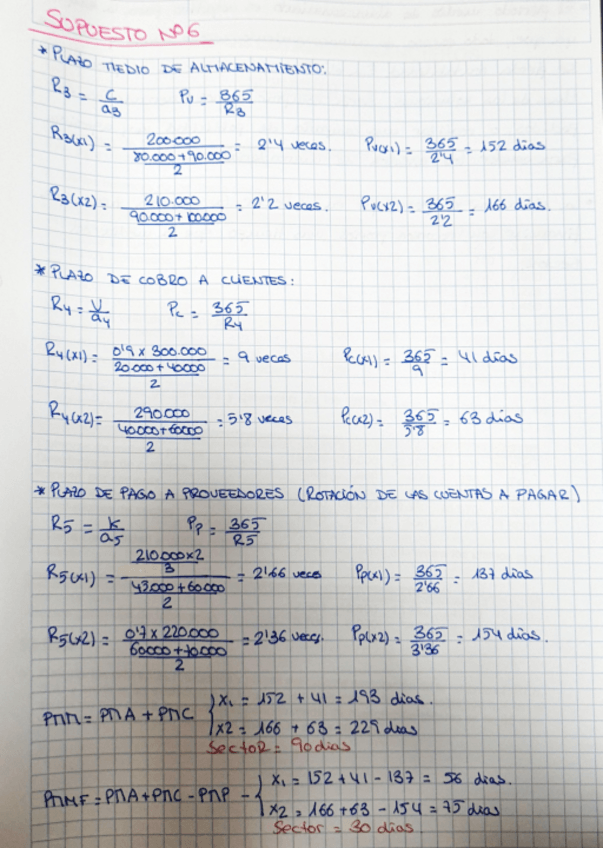 SUPUESTO Nº6
* PLAZO MEDIO DE ALMACENAMIENTO:
R3 = C / a3    Pv = 365 / R3
R3(x1) = 200.000 / ((80.000 + 90.000) / 2) = 2'4 veces.    Pv(x1) = 365 / 2'4 = 152 días
R3(x2) = 210.000 / ((90.000 + 100.000) / 2) = 2'2 veces.    Pv(x2) = 365 / 2'2 = 166 días.
* PLAZO DE COBRO A CLIENTES:
R4 = V / a4    Pc = 365 / R4
R4(x1) = 0'9 x 300.000 / ((20.000 + 40.000) / 2) = 9 veces    Pc(x1) = 365 / 9 = 41 días
R4(x2) = 290.000 / ((40.000 + 60.000) / 2) = 5'8 veces    Pc(x2) = 365 / 5'8 = 63 días
* PLAZO DE PAGO A PROVEEDORES (ROTACIÓN DE LAS CUENTAS A PAGAR)
R5 = K / a5    Pp = 365 / R5
R5(x1) = (210.000 x 2 / 3) / ((45.000 + 60.000) / 2) = 2'66 veces    Pp(x1) = 365 / 2'66 = 137 días
R5(x2) = 0'7 x 220.000 / ((60.000 + 70.000) / 2) = 2'36 veces.    Pp(x2) = 365 / 3'36 = 154 días.
PMM = PMA + PMC { x1 = 152 + 41 = 193 días.
x2 = 166 + 63 = 229 días
Sector = 90 días
PMMF = PMA + PMC - PMP - { x1 = 152 + 41 - 137 = 56 días.
x2 = 166 + 63 - 154 = 75 días
Sector = 30 días